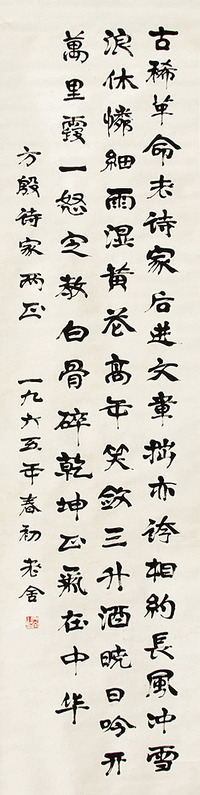 古稀革命老诗家后进文章拙亦誇相約長風冲雪
浪休憐細雨湿黄花高年笑敛三升酒曉日吟开
萬里霞一怒定教白骨碎乾坤正氣在中华
方殷诗家两正 一九六五年春初 老舍